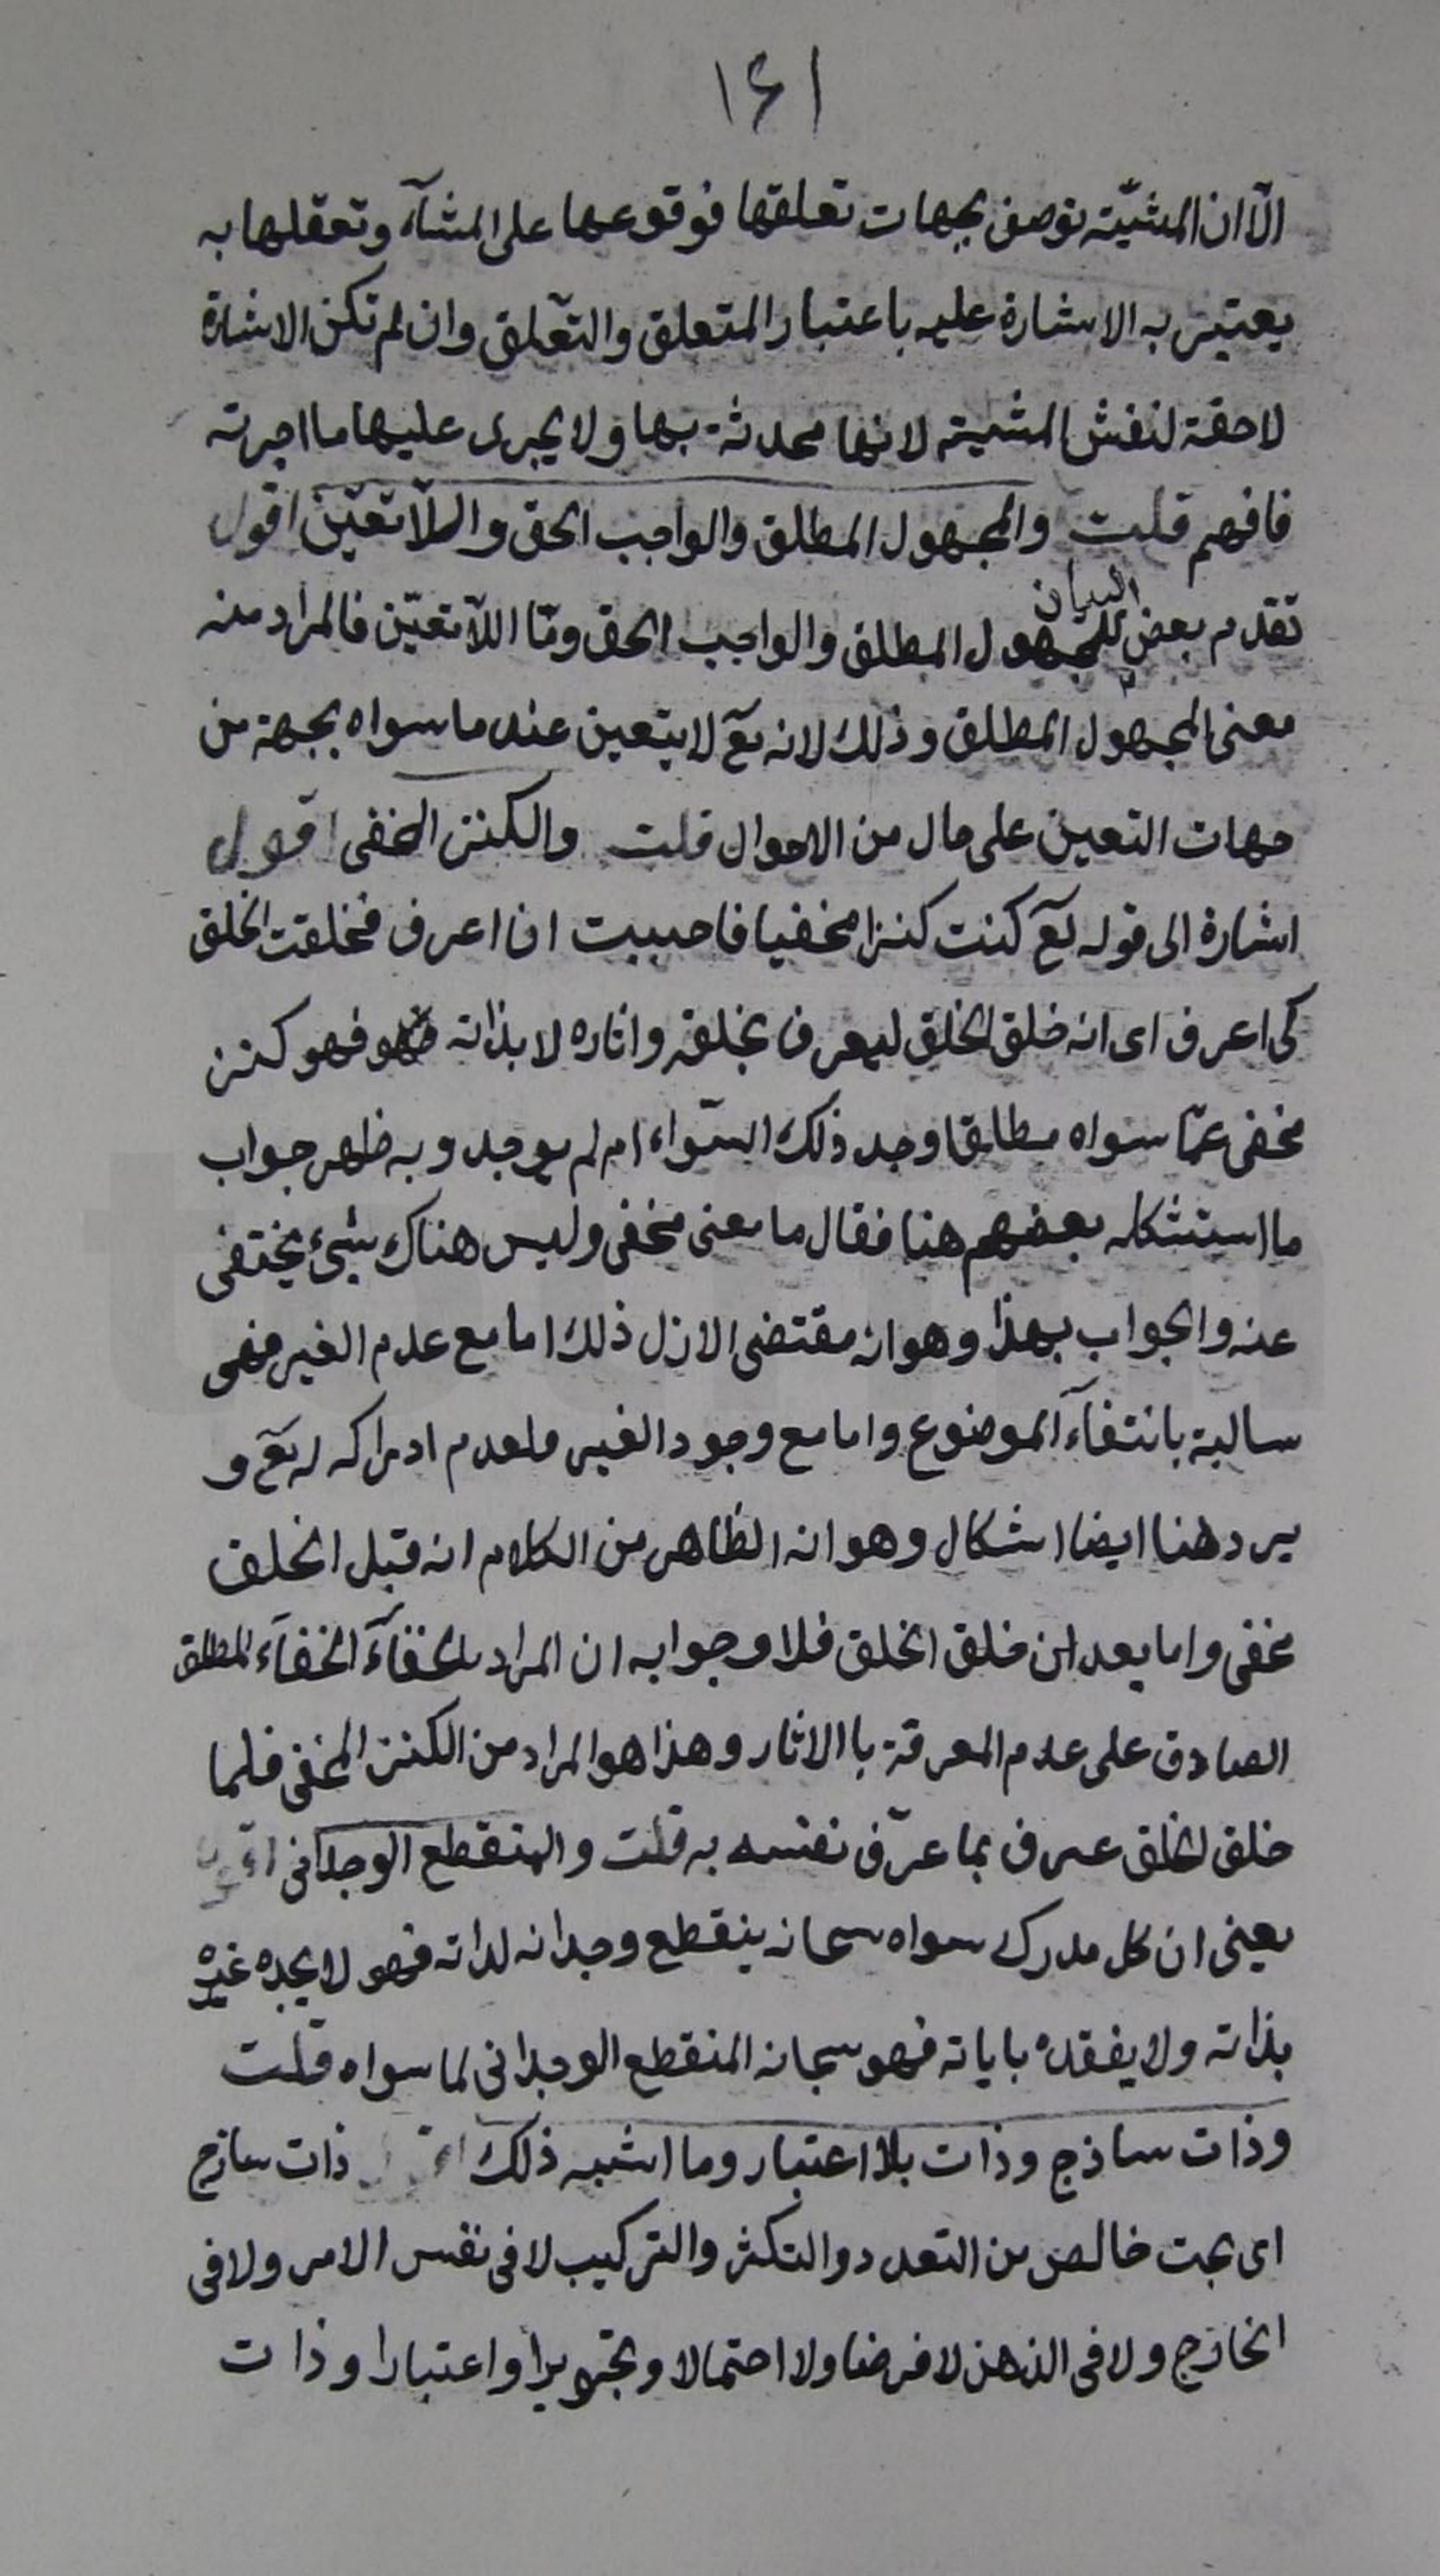 ١٤١
الّا ان المشيّة توصف بجهات تعلقها فوقوعها على المشآء وتعقلها به
يعتبر به الاشارة عليه باعتبار المتعلق والتّعلق وان لم تكن الاشارة
لاحقة لنفس المشية لانها محدثة بها ولا يجرى عليها ما اجرته
فافهم قلت والمجهول المطلق والواجب الحق واللّاتعيّن اقول
تقدم بعض البيان للمجهول المطلق والواجب الحق وامّا اللّاتعيّن فالمراد منه
معنى المجهول المطلق وذلك لانه تع لا يتعين عند ما سواه بجهة من
جهات التعين على حال من الاحوال قلت والكنز المخفى اقول
اشارة الى قوله تع كنت كنزا مخفيا فاحببت ان اعرف فخلقت الخلق
كى اعرف اى انه خلق الخلق ليعرف بخلقه واثاره لا بذاته فهو كنز
مخفى عمّا سواه مطلقا وجد ذلك السّواء ام لم يوجد وبه ظهر جواب
ما استشكله بعضهم هنا فقال ما معنى مخفى وليس هناك شىء يختفى
عنه والجواب بهذا وهو انه مقتضى الازل ذلك اما مع عدم الغير فهى
سالبة بانتفآء الموضوع واما مع وجود الغير فلعدم ادراكه له تع و
يرد هنا ايضا اشكال وهو انه الظاهر من الكلام انه قبل الخلق
مخفى واما بعد ان خلق الخلق فلا وجوابه ان المراد بالخفآء الخفآء المطلق
الصادق على عدم المعرفة باالاثار وهذا هو المراد من الكنز المخفى فلما
خلق الخلق عرف بما عرّف نفسه به قلت والمنقطع الوجدانى اقول
يعنى ان كل مدرك سواه سبحانه ينقطع وجدانه لذاته فهو لا يجده غيره
بذاته ولا يفقده باياته فهو سبحانه المنقطع الوجدانى لما سواه قلت
وذات ساذج وذات بلا اعتبار وما اشبه ذلك ذات ساذج
اى بحت خالص من التعدد والتكثر والتركيب لا فى نفس الامر ولا فى
الخارج ولا فى الذهن لا فرضا ولا احتمالا وتجويزا واعتبارا وذات